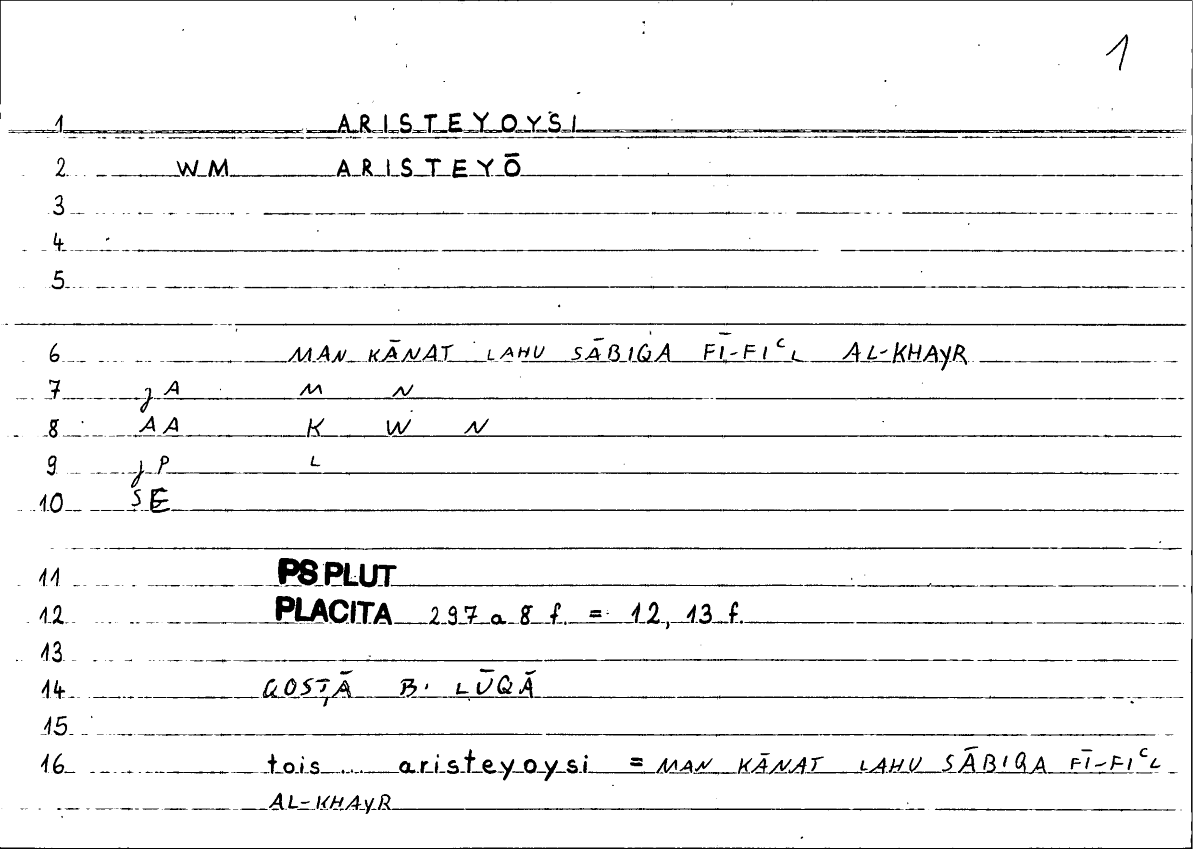 1
1 ARISTEYOYSI
2 WM ARISTEYŌ
3
4
5
6 MAN KĀNAT LAHU SĀBIQA FĪ-FIᶜL AL-KHAYR
7 jA M N
8 AA K W N
9 jP L
10 SE
11 PS PLUT
12 PLACITA 297 a 8 f. = 12, 13 f.
13
14 QOSṬĀ B. LŪQĀ
15
16 tois ... aristeyoysi = MAN KĀNAT LAHU SĀBIQA FĪ-FIᶜL
AL-KHAYR